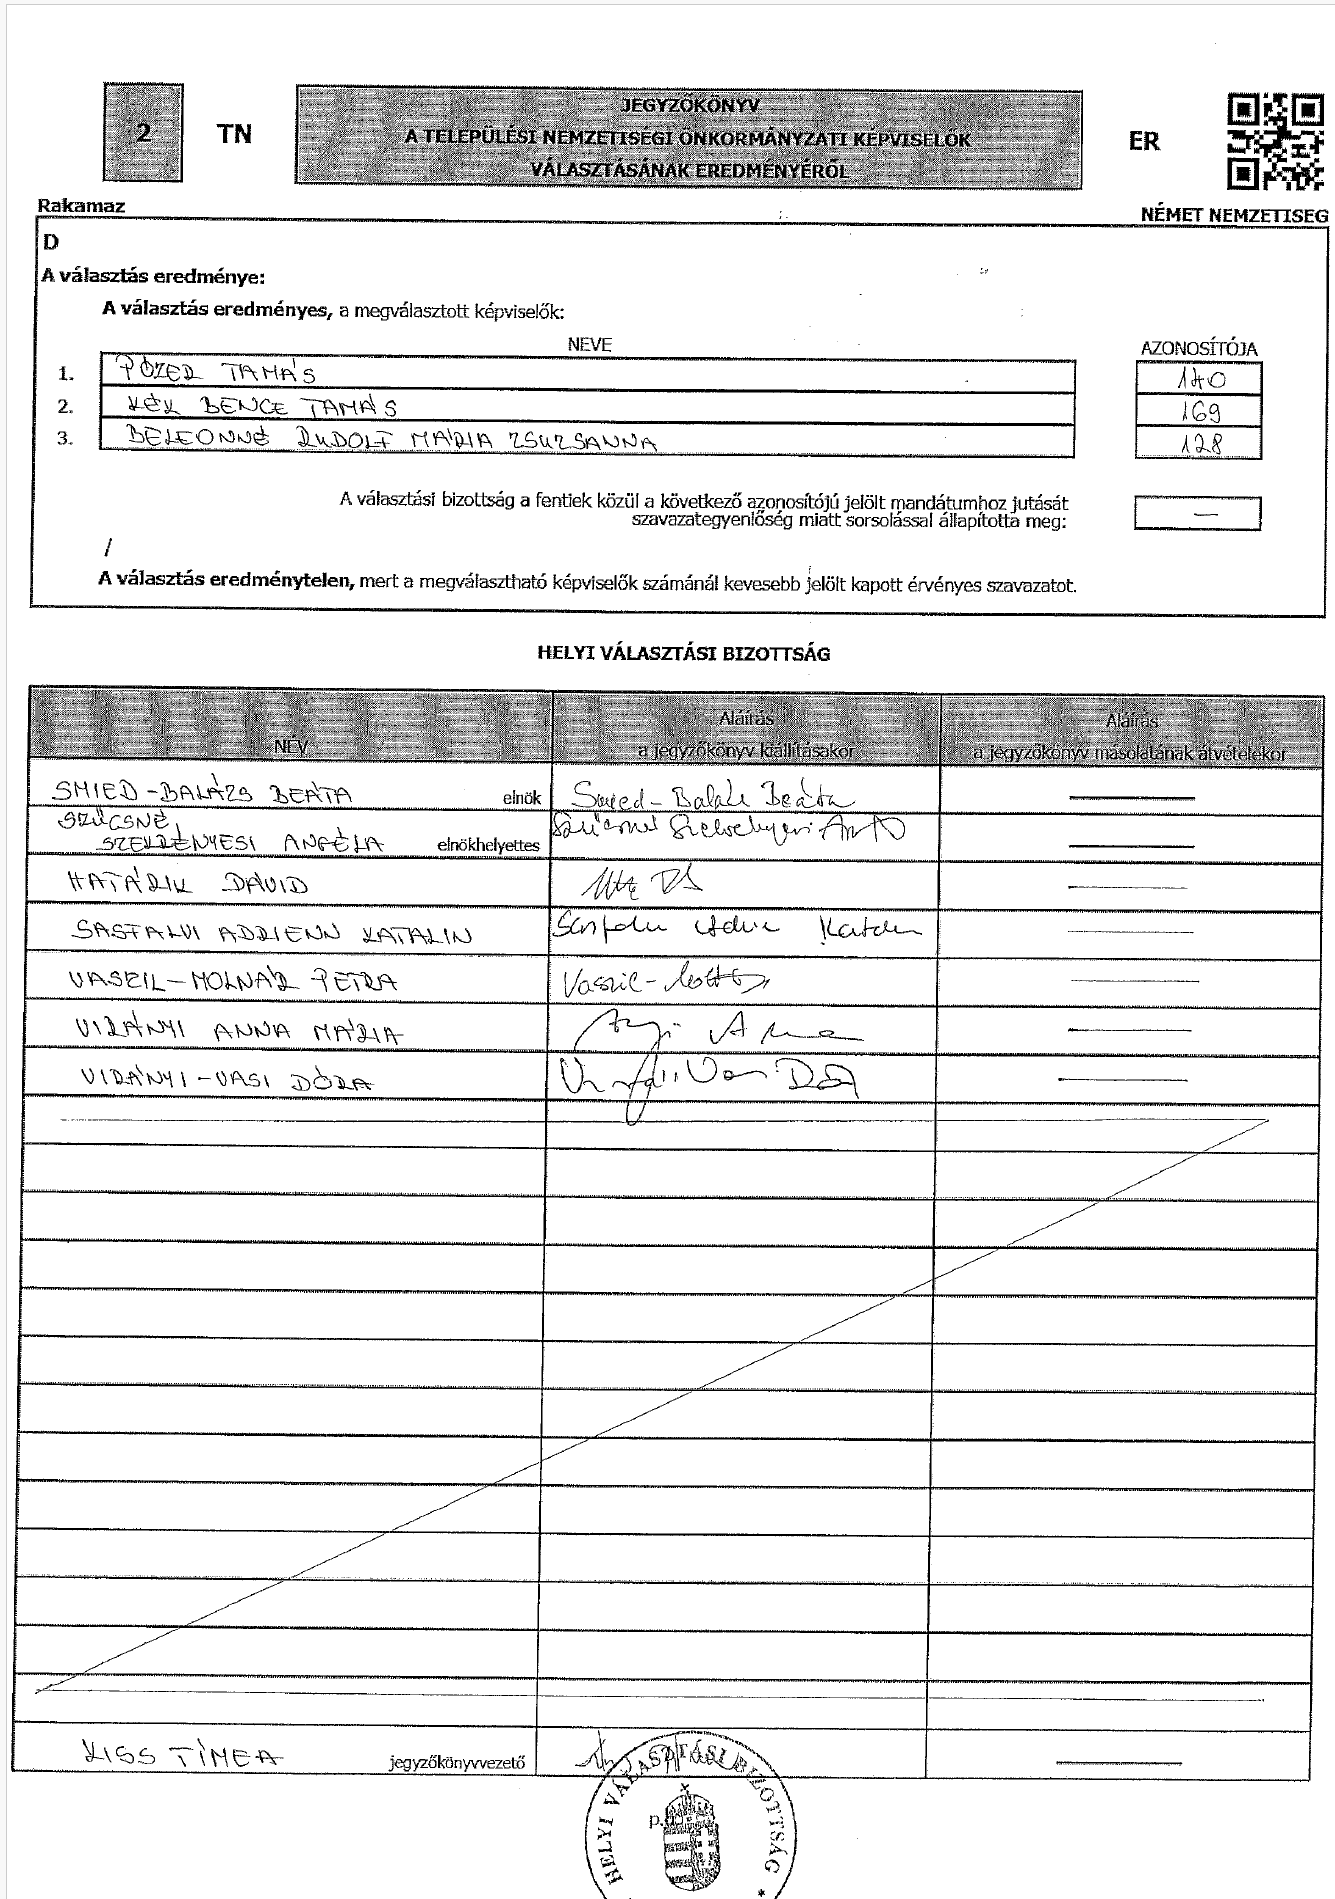 2
TN
JEGYZŐKÖNYV
A TELEPÜLÉSI NEMZETISÉGI ÖNKORMÁNYZATI KÉPVISELŐK
VÁLASZTÁSÁNAK EREDMÉNYÉRŐL
ER
Rakamaz
NÉMET NEMZETISÉG
D
A választás eredménye:
A választás eredményes, a megválasztott képviselők:
NEVE AZONOSÍTÓJA
1. PÓZER TAMÁS 140
2. KÉK BENCE TAMÁS 169
3. BELEONNÉ RUDOLF MÁRIA ZSUZSANNA 128
A választási bizottság a fentiek közül a következő azonosítójú jelölt mandátumhoz jutását
szavazategyenlőség miatt sorsolással állapította meg: —
/
A választás eredménytelen, mert a megválasztható képviselők számánál kevesebb jelölt kapott érvényes szavazatot.
HELYI VÁLASZTÁSI BIZOTTSÁG
NÉV
Aláírás
a jegyzőkönyv kiállításakor
Aláírás
a jegyzőkönyv másolatának átvételekor
SMIED-BALÁZS BEÁTA elnök Smied-Balázs Beáta
SZŰCSNÉ
SZEKRÉNYESI ANGÉLA elnökhelyettes
HATÁRIK DÁVID
SASFALVI ADRIENN KATALIN
VASZIL-MOLNÁR PETRA
VIRÁNYI ANNA MÁRIA
VIRÁNYI-VASI DÓRA
KISS TÍMEA jegyzőkönyvvezető
HELYI VÁLASZTÁSI BIZOTTSÁG *